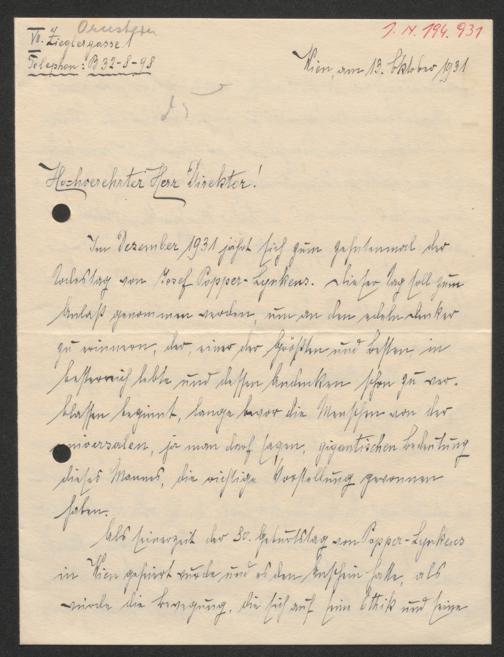 VII. Zieglergasse 1
Telephon: B 32-8-98
I. N. 194.931
Wien, am 13. Oktober 1931
Hochverehrter Herr Direktor!
Im Dezember 1931 jährt sich zum zehntenmal der
Todestag von Josef Popper-Lynkeus. Dieser Tag soll zum
Anlaß genommen werden, um an den edeln Denker
zu erinnern, der, einer der Größten und Besten, in
Oesterreich lebte und dessen Andenken schon zu ver-
blassen beginnt, lange bevor die Menschen von der
universalen, ja man darf sagen, gigantischen Bedeutung
dieses Mannes, die richtige Vorstellung gewonnen
haben.
Als seinerzeit der 80. Geburtstag von Popper-Lynkeus
in Wien gefeiert wurde und es den Anschein hatte, als
würde die Bewegung, die sich auf seine Ethik und seine